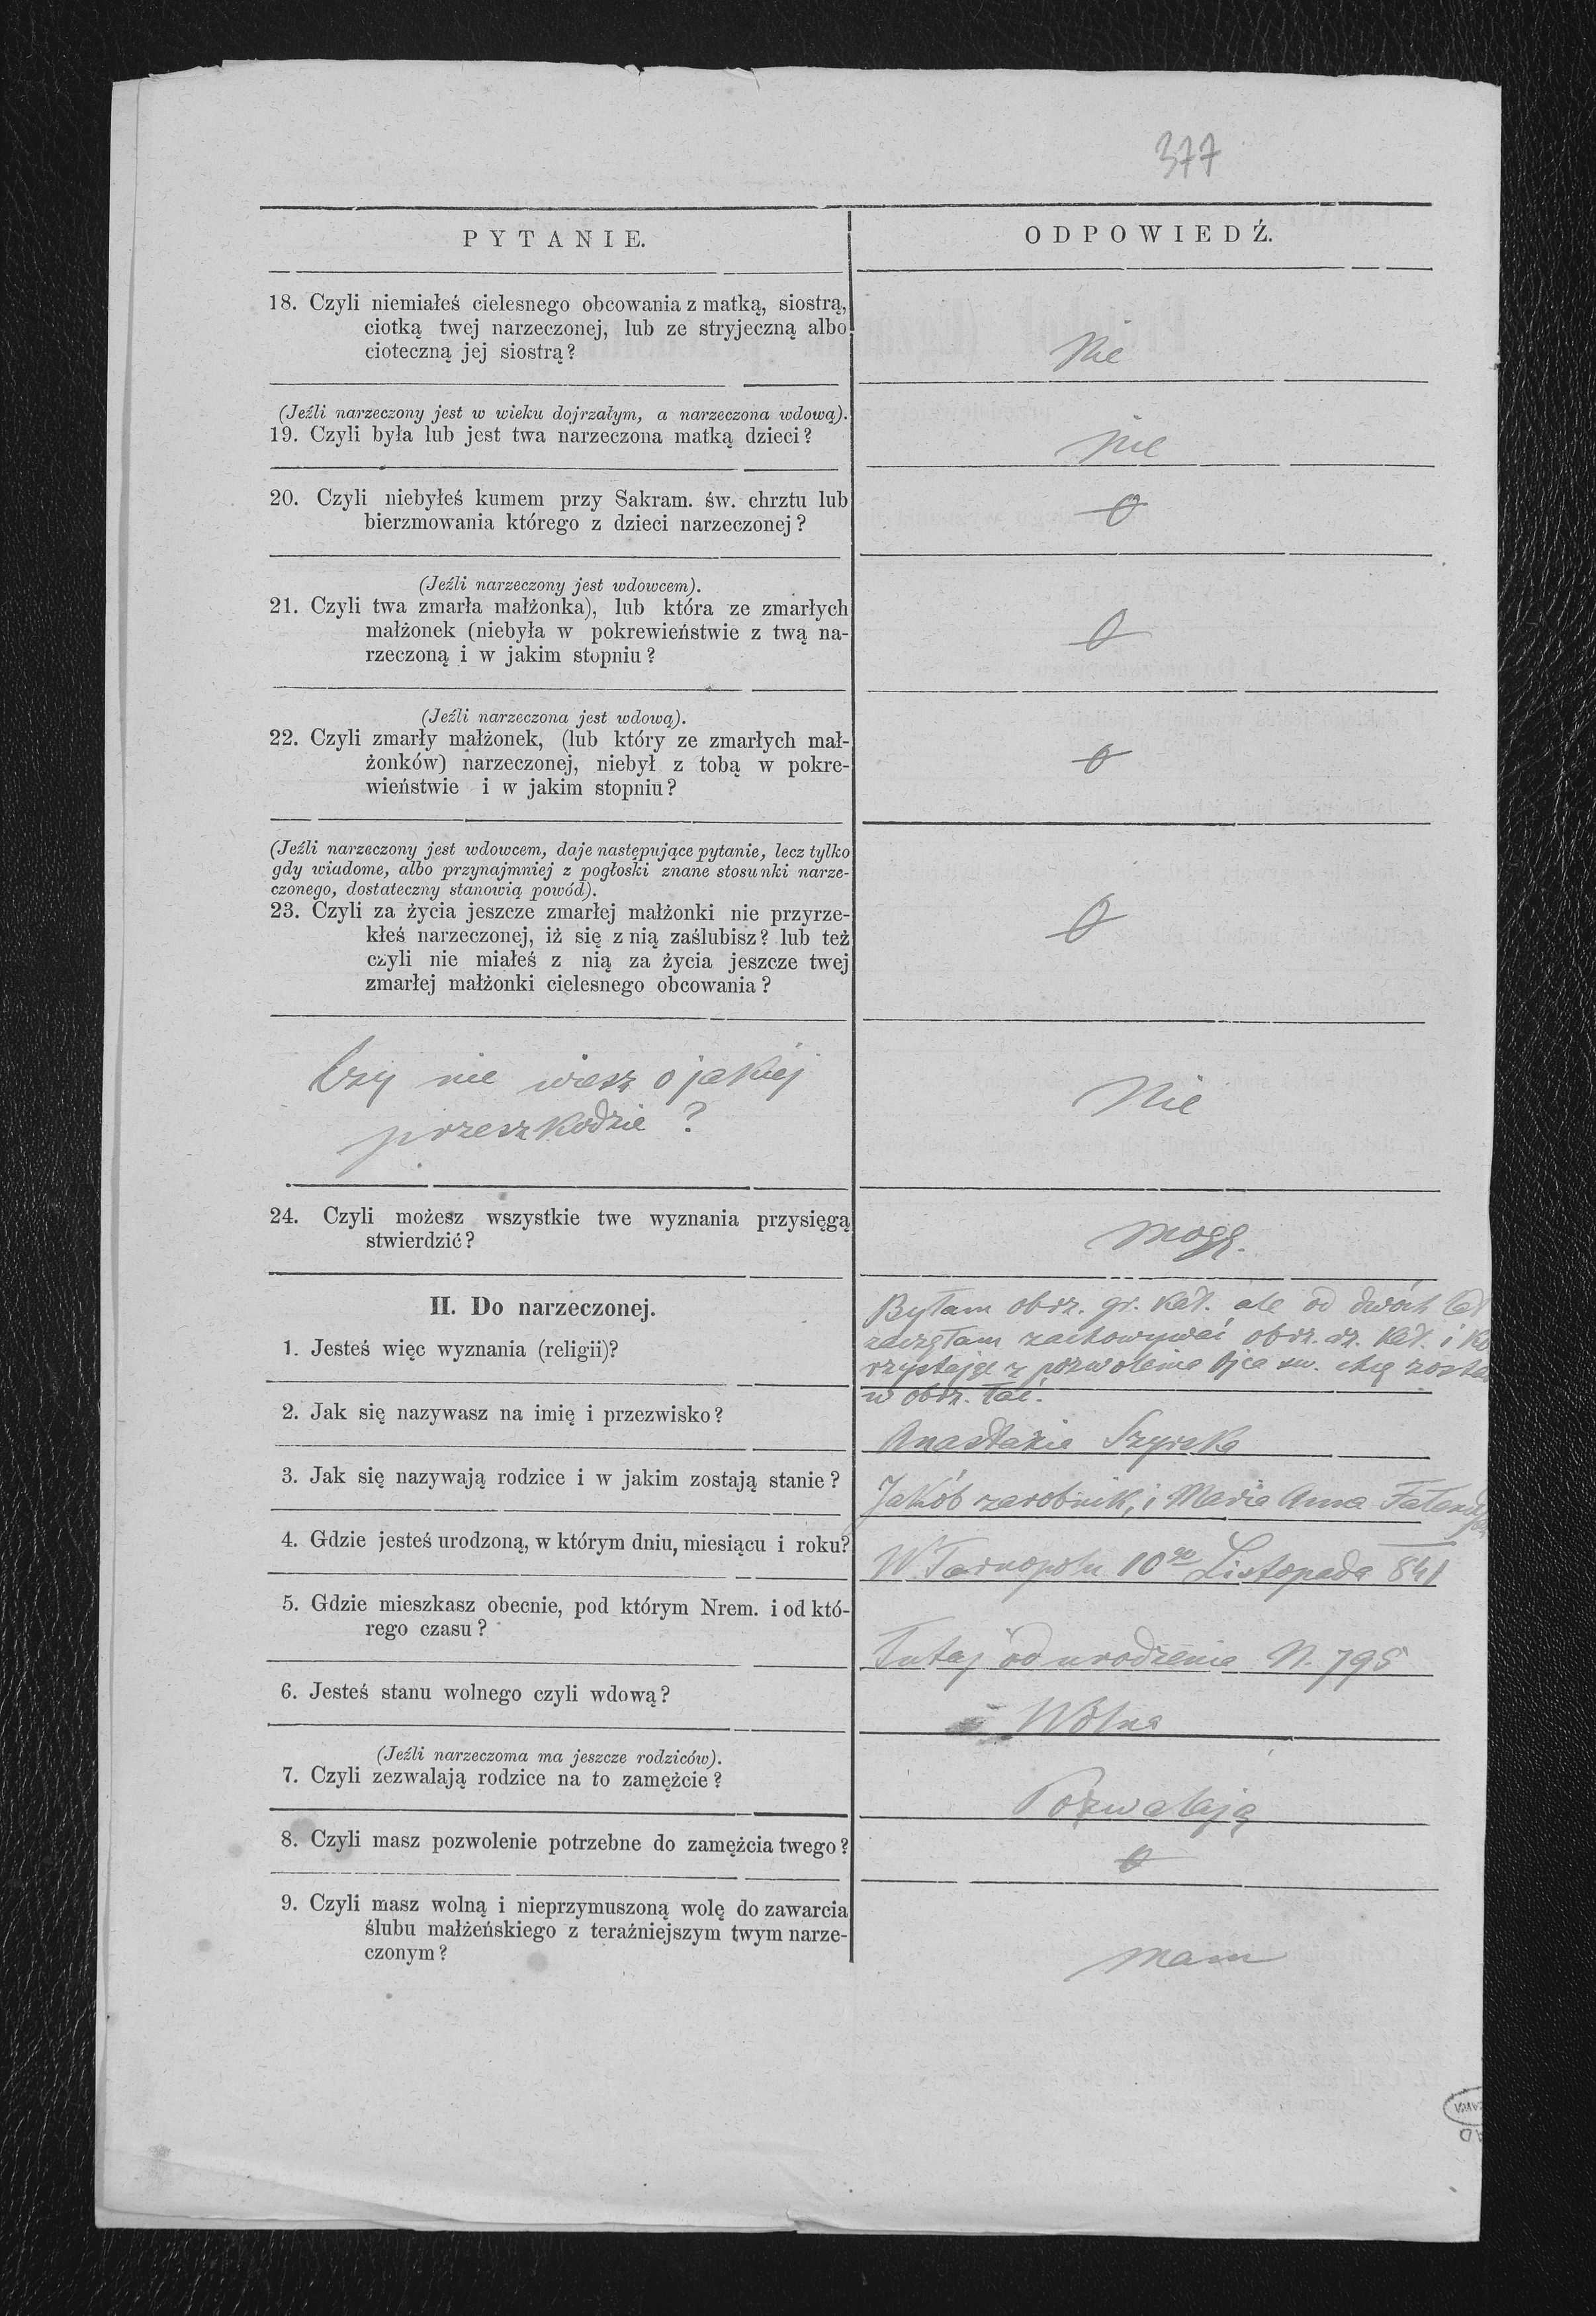 377
PYTANIE.
ODPOWIEDŹ.
18. Czyli niemiałeś cielesnego obcowania z matką, siostrą,
ciotką twej narzeczonej, lub ze stryjeczną albo
cioteczną jej siostrą?
Nie
(Jeźli narzeczony jest w wieku dojrzałym, a narzeczona wdową).
19. Czyli była lub jest twa narzeczona matką dzieci?
nie
20. Czyli niebyłeś kumem przy Sakram. św. chrztu lub
bierzmowania którego z dzieci narzeczonej?
0
(Jeźli narzeczony jest wdowcem).
21. Czyli twa zmarła małżonka), lub która ze zmarłych
małżonek (niebyła w pokrewieństwie z twą na-
rzeczoną i w jakim stopniu?
0
(Jeźli narzeczona jest wdową).
22. Czyli zmarły małżonek, (lub który ze zmarłych mał-
żonków) narzeczonej, niebył z tobą w pokre-
wieństwie i w jakim stopniu?
0
(Jeźli narzeczony jest wdowcem, daje następujące pytanie, lecz tylko
gdy wiadome, albo przynajmniej z pogłoski znane stosunki narze-
czonego, dostateczny stanowią powód).
23. Czyli za życia jeszcze zmarłej małżonki nie przyrze-
kłeś narzeczonej, iż się z nią zaślubisz? lub też
czyli nie miałeś z nią za życia jeszcze twej
zmarłej małżonki cielesnego obcowania?
0
Czy nie wiesz o jakiej
przeszkodzie?
Nie
24. Czyli możesz wszystkie twe wyznania przysięgą
stwierdzić?
mogę.
II. Do narzeczonej.
1. Jesteś więc wyznania (religii)?
Byłam obrz. gr. kat. ale od dwóch lat
zaczęłam zachowywać obrz. rz. kat. i ko
rzystając z pozwolenia Ojca św. chcę zostać
w obrz. łać.
2. Jak się nazywasz na imię i przezwisko?
Anastazia Szyrska
3. Jak się nazywają rodzice i w jakim zostają stanie?
Jakób zarobnik, i Maria Anna
4. Gdzie jesteś urodzoną, w którym dniu, miesiącu i roku?
W Tarnopolu 10go Listopada 841
5. Gdzie mieszkasz obecnie, pod którym Nrem. i od któ-
rego czasu?
Tutaj od urodzenia N. 795
6. Jesteś stanu wolnego czyli wdową?
Wolna
(Jeźli narzeczoma ma jeszcze rodziców).
7. Czyli zezwalają rodzice na to zamężcie?
Pozwalają
8. Czyli masz pozwolenie potrzebne do zamężcia twego?
0
9. Czyli masz wolną i nieprzymuszoną wolę do zawarcia
ślubu małżeńskiego z teraźniejszym twym narze-
czonym?
mam